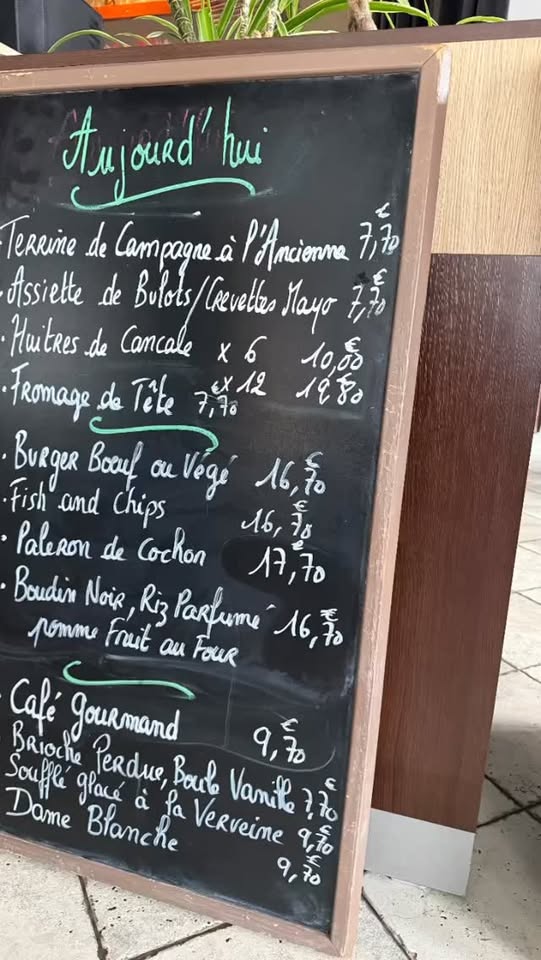 Aujourd'hui
· Terrine de Campagne à l'Ancienne 7,70 €
· Assiette de Bulots/Crevettes Mayo 7,70 €
· Huitres de Cancale x 6 10,00 €
x 12 19,80 €
· Fromage de Tête 7,70 €
· Burger Boeuf ou Végé 16,70 €
· Fish and chips 16,70 €
· Paleron de Cochon 17,70 €
· Boudin Noir, Riz Parfumé 16,70 €
pomme Fruit au Four
· Café gourmand 9,70 €
Brioche Perdue, Boule Vanille 7,70 €
Soufflé glacé à la Verveine 9,70 €
Dame Blanche 9,70 €